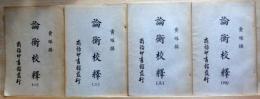 黄暉撰
論衡校釋
商務印書館發行
(一)
黄暉撰
論衡校釋
商務印書館發行
(二)
黄暉撰
論衡校釋
商務印書館發行
(三)
黄暉撰
論衡校釋
商務印書館發行
(四)